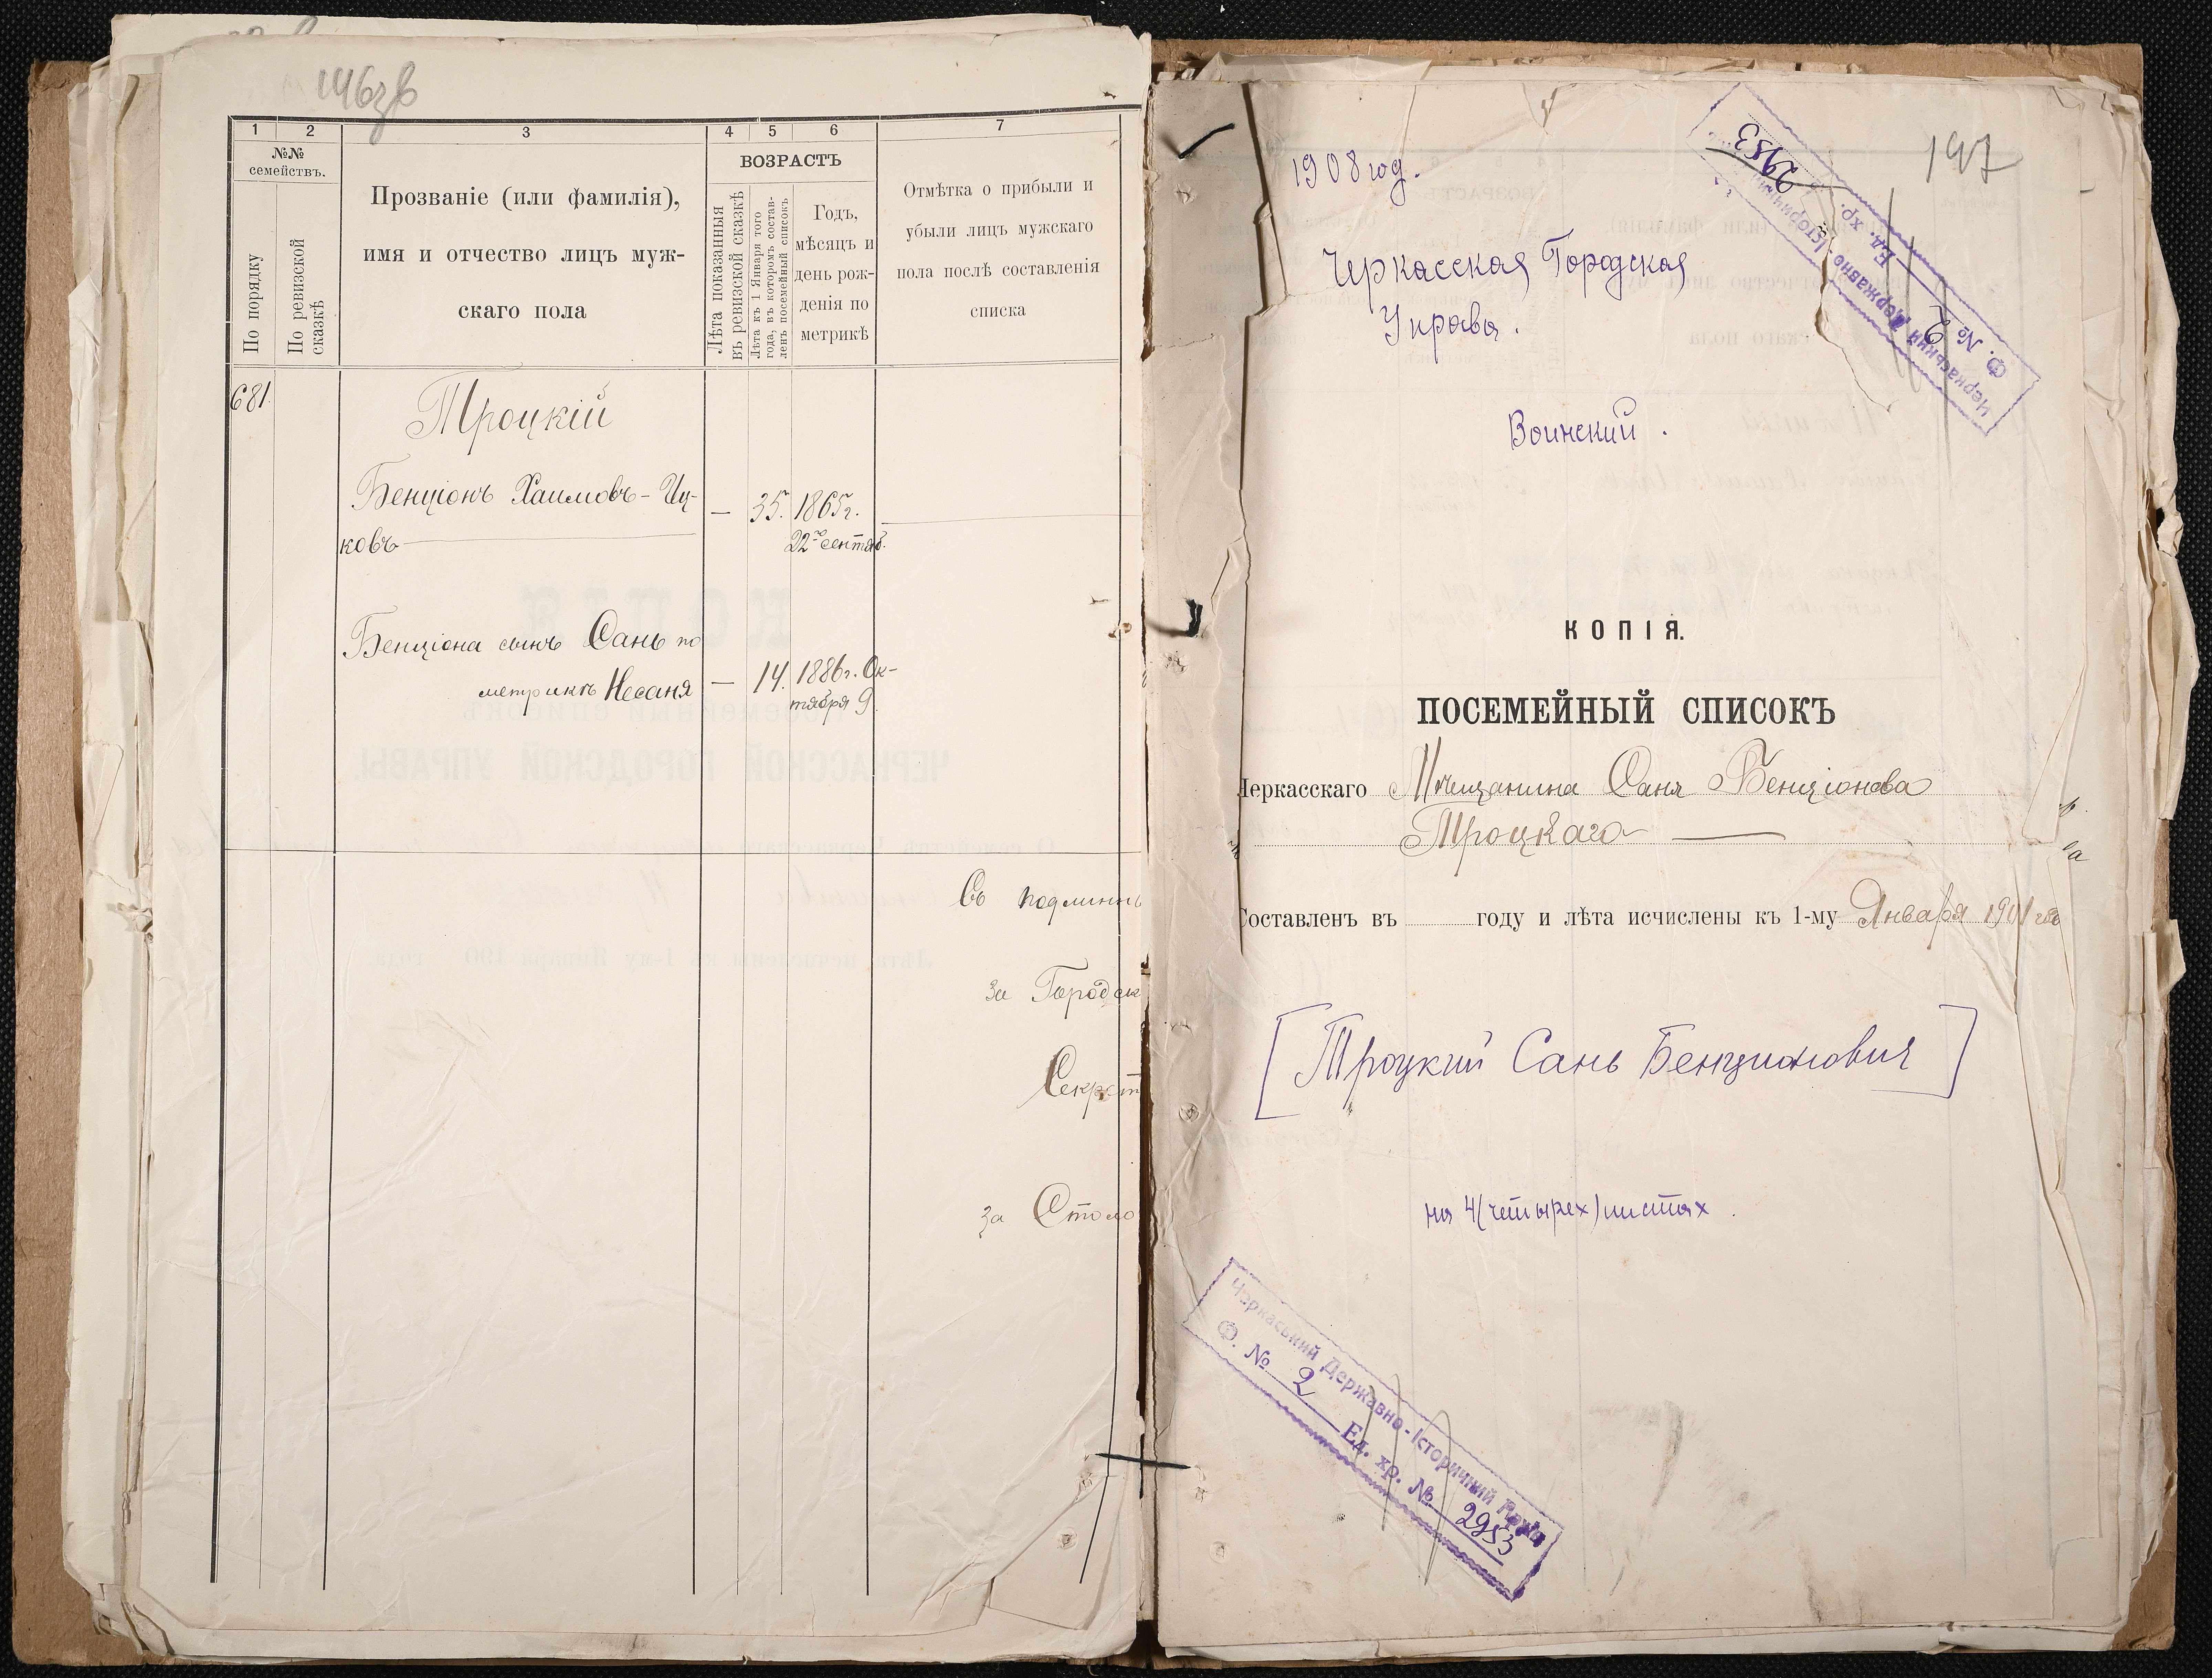 146 зв
1 2 3 4 5 6 7
№№
семействъ.
По порядку
По ревизской
сказкѣ
Прозваніе (или фамилія),
имя и отчество лицъ муж-
скаго пола
ВОЗРАСТЪ
Лѣта показанныя
въ ревизской сказкѣ
Лѣта къ 1 Января того
года, въ которомъ состав-
ленъ посемейный списокъ
Годъ,
мѣсяцъ и
день рож-
денія по
метрикѣ
Отмѣтка о прибыли и
убыли лицъ мужскаго
пола послѣ составленія
списка
681.
Троцкій
Бенціонъ Хаимовъ-Иц-
ковъ
— 35. 1865 г.
22 сентяб.
Бенціона сынъ Сань по
метрикѣ Несаня
— 14. 1886 г. Ок-
тября 9.
Съ подлинн
за Городск
Секрет
за Столо
147
1908 год.
Черкасская Городская
Управа.
Воинский.
Черкаський Державно-Історичний
Ф. № 2 Ед. хр. 2953
КОПІЯ.
ПОСЕМЕЙНЫЙ СПИСОКЪ
Черкасскаго Мѣщанина Саня Бенціонова
Троцкаго
Составленъ въ году и лѣта исчислены къ 1-му Января 1901 года
[Троцкий Сань Бенционович]
на 4(четырех)листах.
Черкаський Державно-Історичний
Ф. № 2 Ед. хр. № 2953